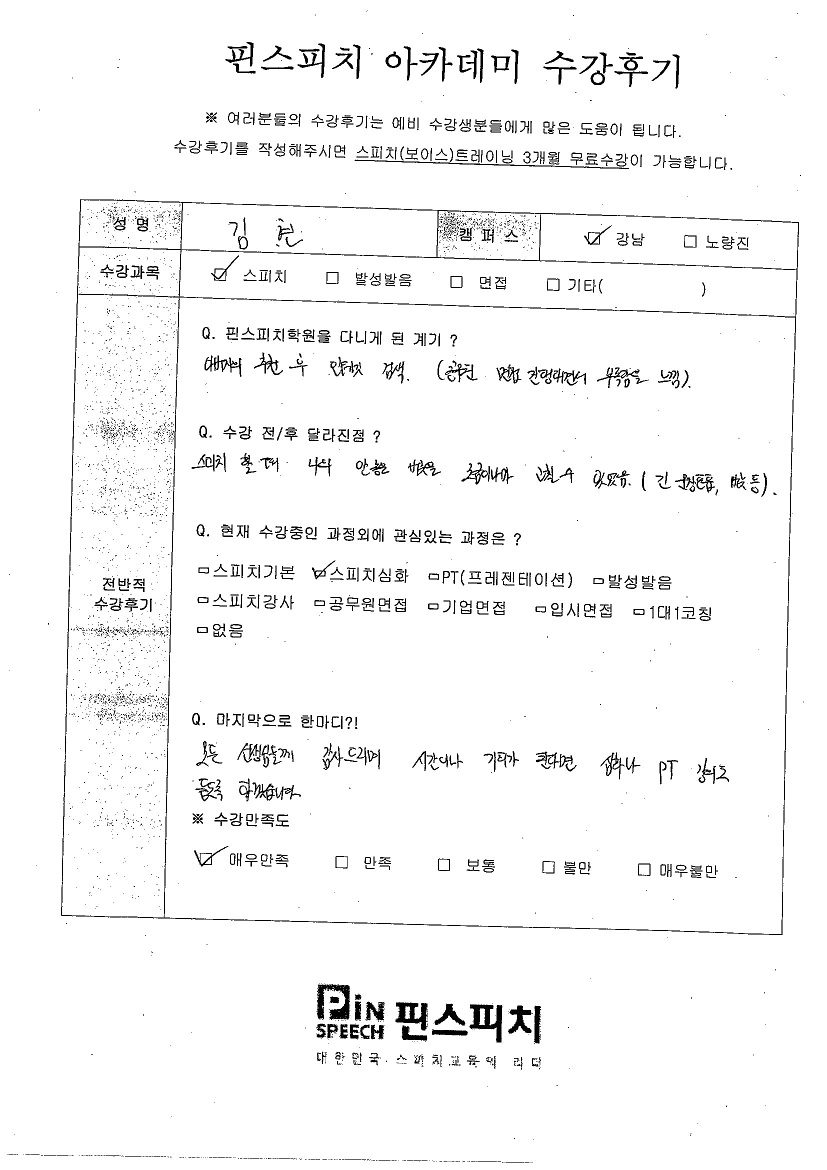 핀스피치 아카데미 수강후기
※ 여러분들의 수강후기는 예비 수강생분들에게 많은 도움이 됩니다.
수강후기를 작성해주시면 스피치(보이스)트레이닝 3개월 무료수강이 가능합니다.
성 명 김 현 캠 퍼 스 ☑ 강남 □ 노량진
수강과목 ☑ 스피치 □ 발성발음 □ 면접 □ 기타( )
Q. 핀스피치학원을 다니게 된 계기 ?
추천 후 인터넷 검색. ( 면접 부족함을 느낌).
Q. 수강 전/후 달라진점 ?
스피치 할 때 나의 안좋은 버릇을 조금이나마 고칠 수 있었음. ( 긴 등).
Q. 현재 수강중인 과정외에 관심있는 과정은 ?
□스피치기본 ☑스피치심화 □PT(프레젠테이션) □발성발음
□스피치강사 □공무원면접 □기업면접 □입시면접 □1대1코칭
□없음
전반적
수강후기
Q. 마지막으로 한마디?!
모든 선생님들께 감사드리며 시간이나 기회가 된다면 심화나 PT 강의도
듣도록 하겠습니다.
※ 수강만족도
☑ 매우만족 □ 만족 □ 보통 □ 불만 □ 매우불만
PiN SPEECH 핀스피치
대한민국 스피치교육의 리더